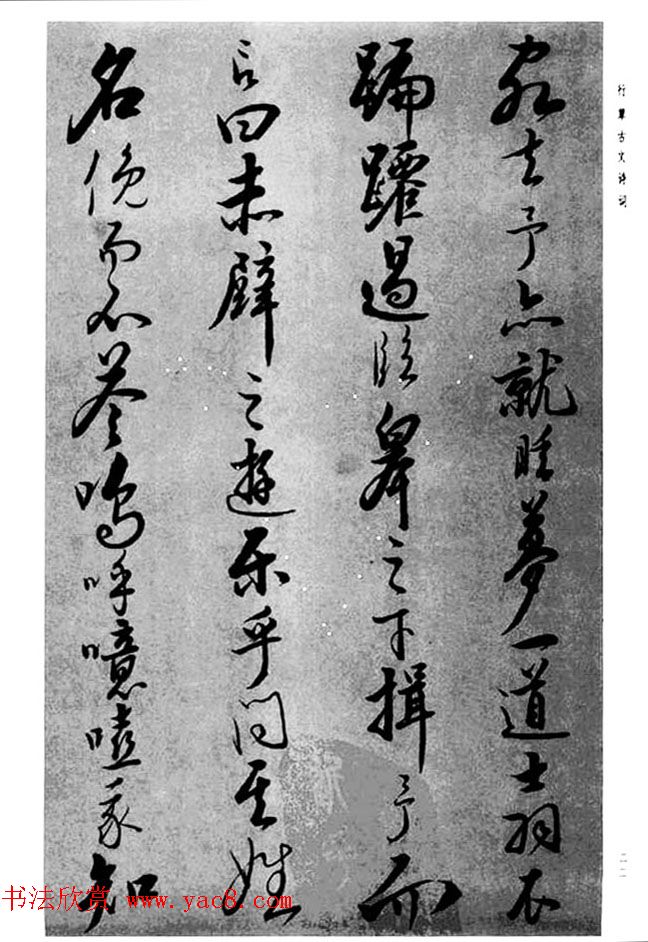 行草古文诗词
客去予亦就睡夢一道士羽衣
蹁躚過臨皋之下揖予而
言曰赤壁之遊樂乎問其姓
名俛而不答嗚呼噫嘻我知
二二
书法欣赏 www.yac8.com